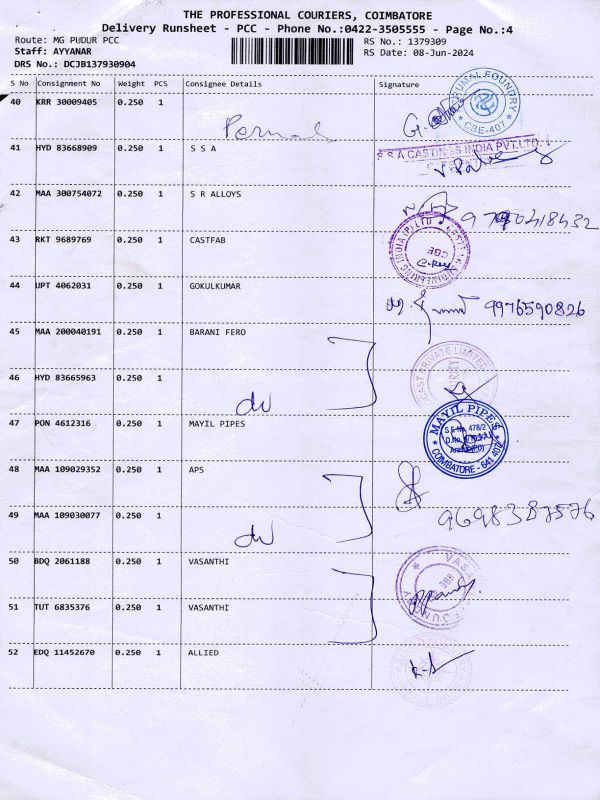 THE PROFESSIONAL COURIERS, COIMBATORE
Delivery Runsheet - PCC - Phone No.:0422-3505555 - Page No.:4
Route: MG PUDUR PCC RS No.: 1379309
Staff: AYYANAR RS Date: 08-Jun-2024
DRS No.: DCJB137930904
S No Consignment No Weight PCS Consignee Details Signature
40 KRR 30009405 0.250 1
CBE-407
41 HYD 83668909 0.250 1 S S A
S S A CASTINGS INDIA PVT.LTD.
42 MAA 300754072 0.250 1 S R ALLOYS
43 RKT 9689769 0.250 1 CASTFAB
CBE
44 UPT 4062031 0.250 1 GOKULKUMAR
9976590826
45 MAA 200040191 0.250 1 BARANI FERO
46 HYD 83665963 0.250 1
do
47 PON 4612316 0.250 1 MAYIL PIPES
MAYIL PIPES
S.F.No. 478/2
COIMBATORE - 641 407
48 MAA 109029352 0.250 1 APS
49 MAA 109030077 0.250 1
do
9698387576
50 BDQ 2061188 0.250 1 VASANTHI
51 TUT 6835376 0.250 1 VASANTHI
52 EDQ 11452670 0.250 1 ALLIED